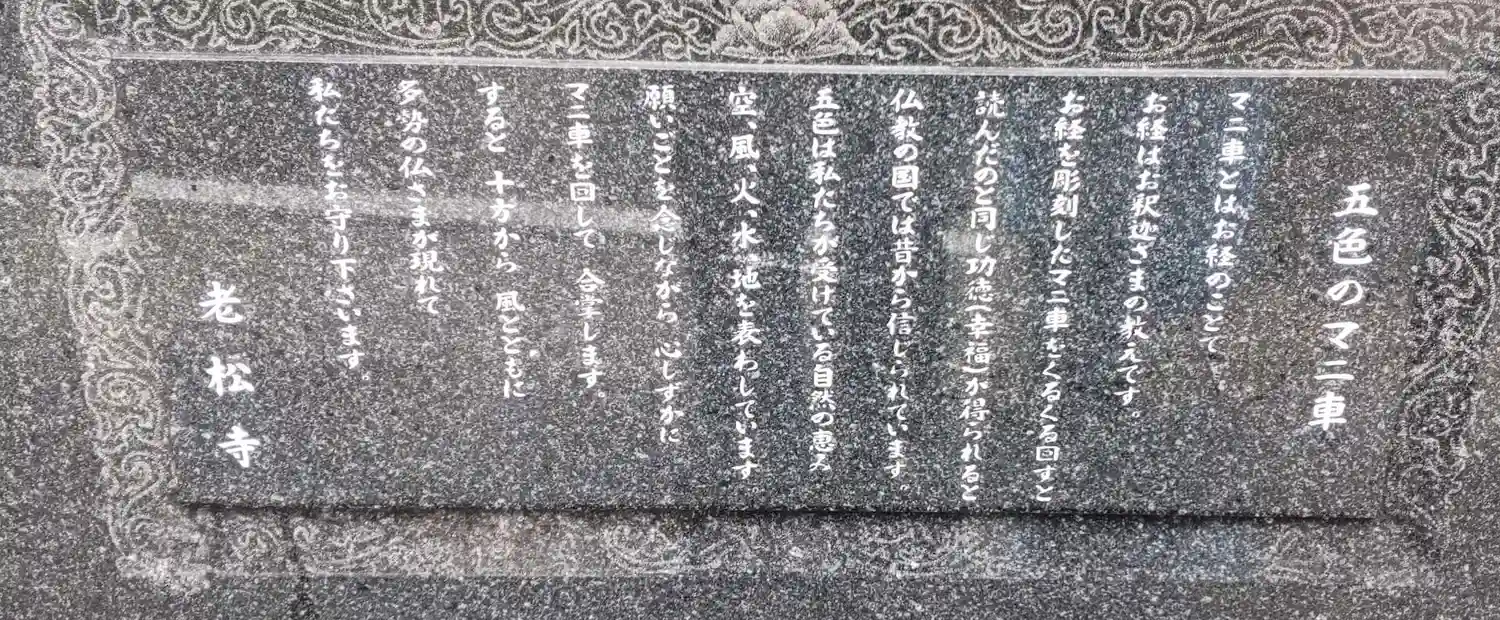 五色のマニ車
マニ車とはお経のことで
お経はお釈迦さまの教えです。
お経を彫刻したマニ車をくるくる回すと
読んだのと同じ功徳(幸福)が得られると
仏教の国では昔から信じられています。
五色は私たちが受けている自然の恵み
空、風、火、水、地を表わしています
願いごとを念じながら 心しずかに
マニ車を回して 合掌します。
すると 十方から 風とともに
多勢の仏さまが現れて
私たちをお守り下さいます。
老松寺